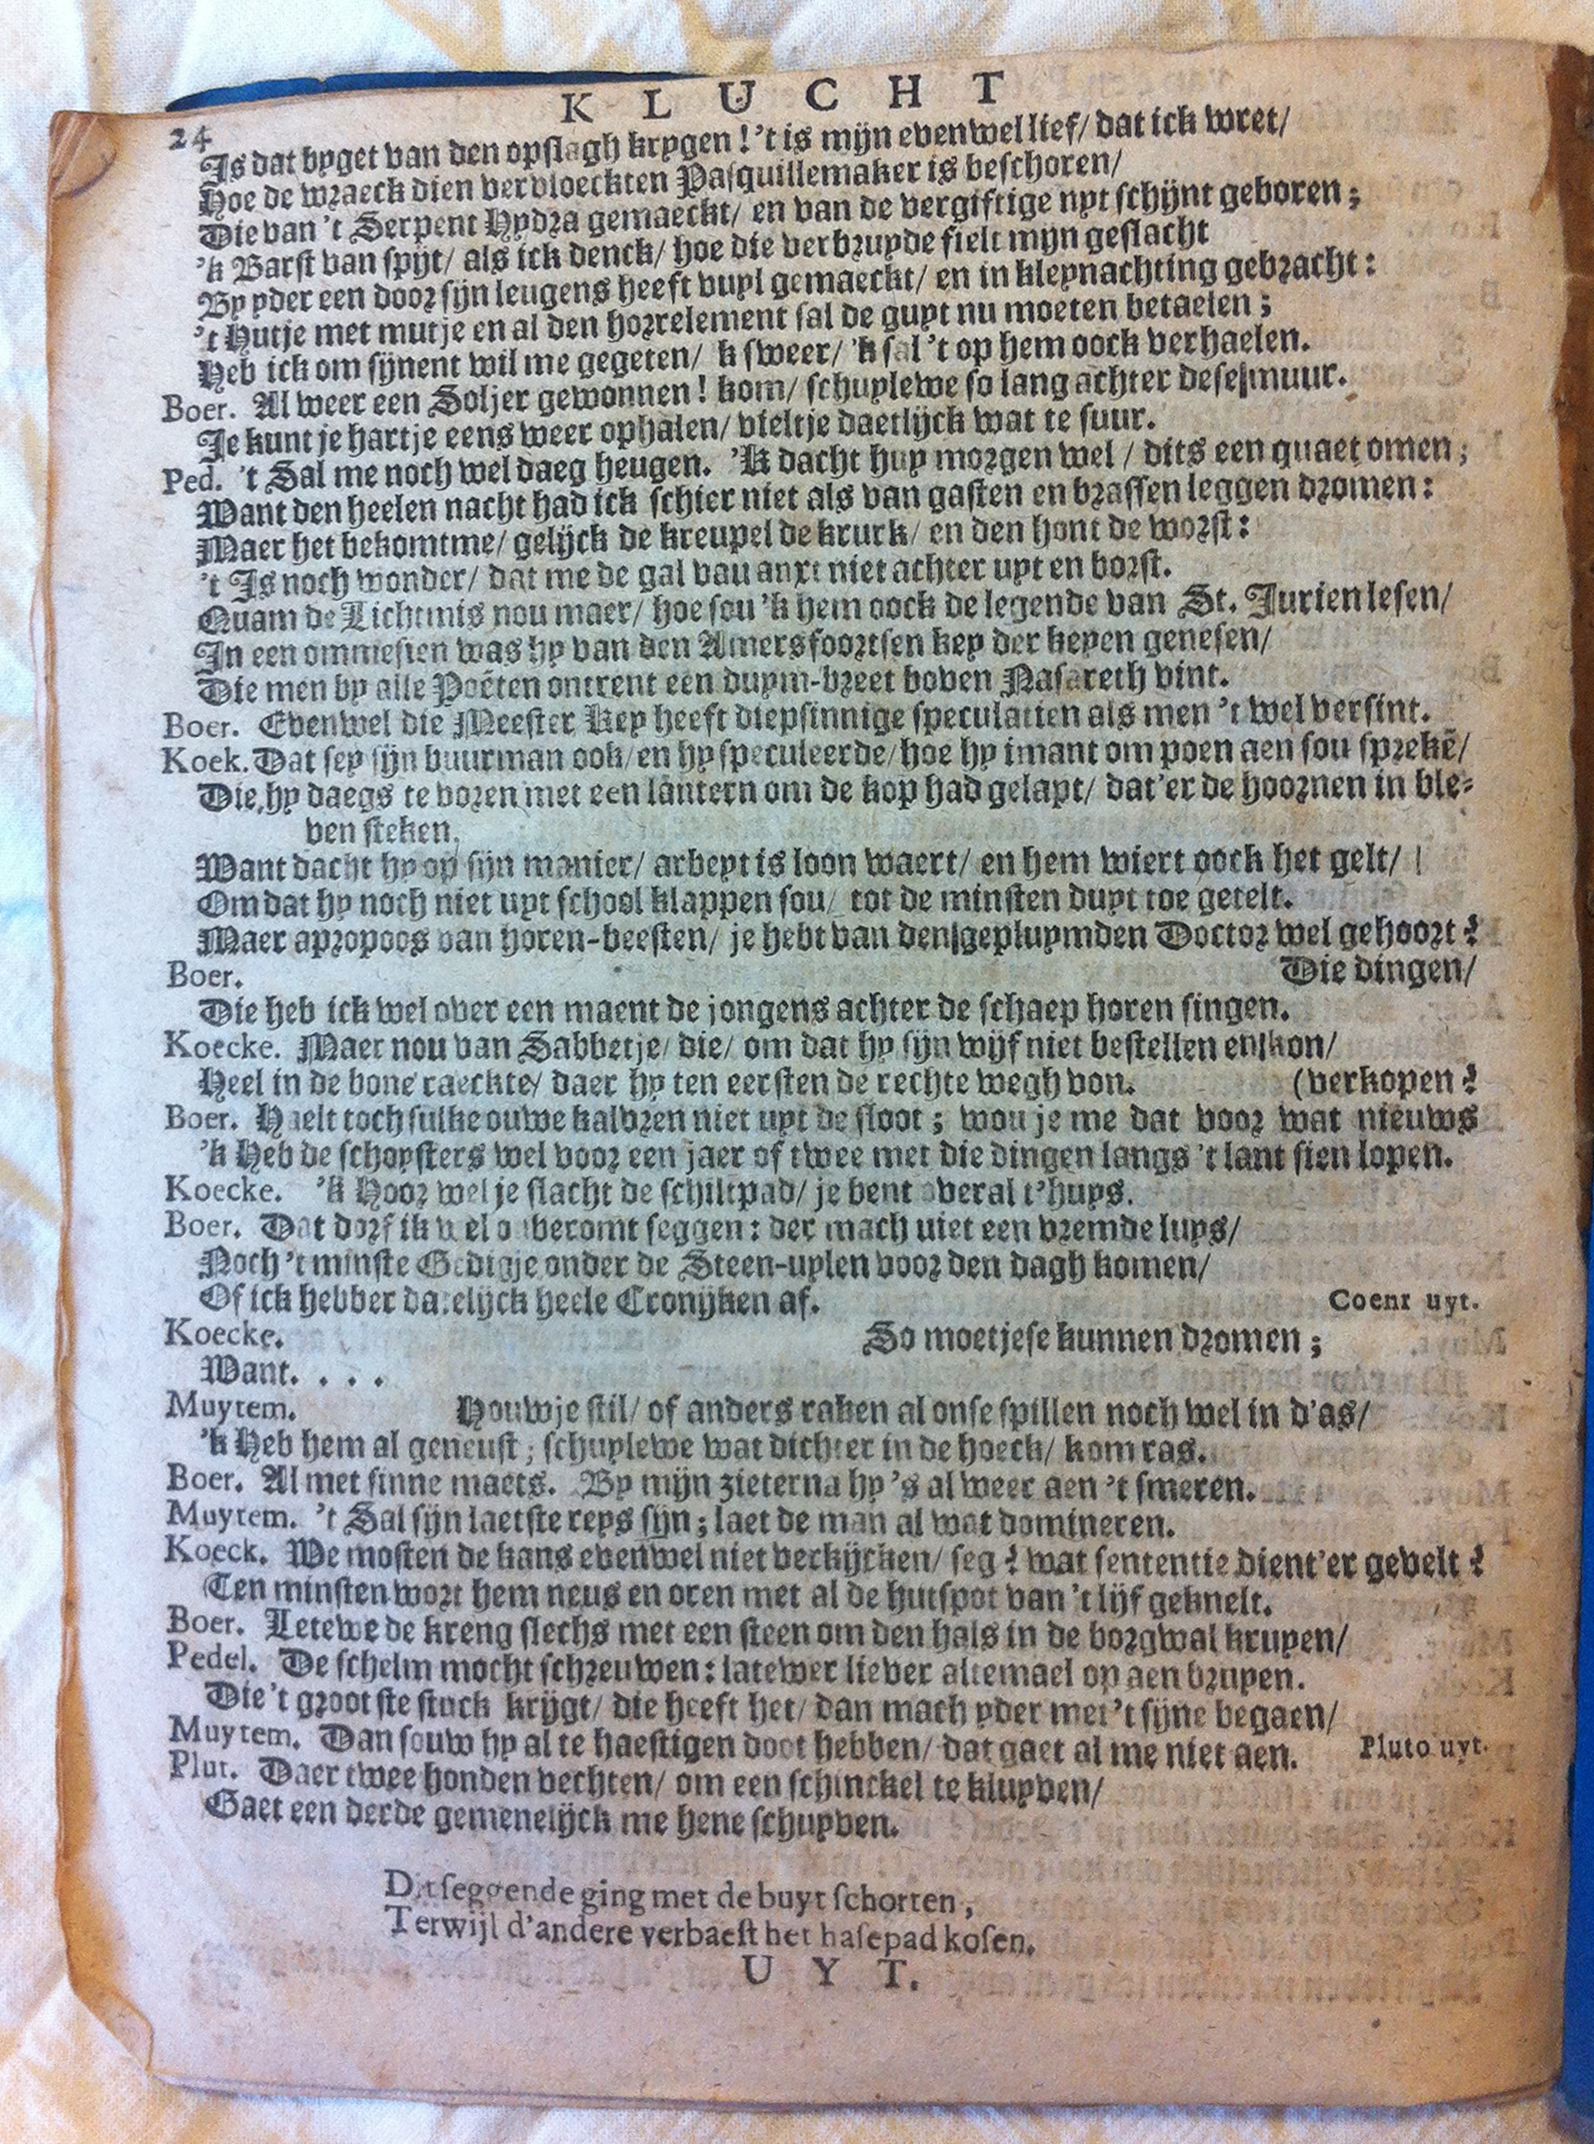 KLUCHT
24
Is dat byget van den opslagh krygen! 't is mijn evenwel lief/ dat ick wret/
Hoe de wraeck dien vervloeckten Pasquillemaker is beschoren/
Die van 't Serpent Hydra gemaeckt/ en van de vergiftige nyt schijnt geboren;
'k Barst van spijt/ als ick denck/ hoe die verbruyde fielt mijn geslacht
By yder een door sijn leugens heeft vuyl gemaeckt/ en in kleynachting gebracht:
't Hutje met mutje en al den horrelement sal de guyt nu moeten betaelen;
Heb ick om sijnent wil me gegeten/ k sweer/ 'k sal 't op hem oock verhaelen.
Boer. Al weer een Soljer gewonnen! kom/ schuylewe so lang achter dese muur.
Je kunt je hartje eens weer ophalen/ vieltje daetlijck wat te suur.
Ped. 't Sal me noch wel daeg heugen. 'K dacht huy morgen wel / dits een quaet omen;
Want den heelen nacht had ick schier niet als van gasten en brassen leggen dromen:
Maer het bekomtme/ gelijck de kreupel de kruck/ en den hont de worst:
't Is noch wonder/ dat me de gal vau anxt niet achter uyt en borst.
Quam de Lichtmis nou maer/ hoe sou 'k hem oock de legende van St. Jurien lesen/
In een ommesien was hy van den Amersfoortsen key der keyen genesen/
Die men by alle Poëten ontrent een duym-breet boven Nasareth vint.
Boer. Evenwel die Meester Key heeft diepsinnige speculatien als men 't wel versint.
Koek. Dat sey sijn buurman ook/ en hy speculeerde/ hoe hy imant om poen aen sou sprekē/
Die hy daegs te voren met een lantern om de kop had gelapt/ dat'er de hoornen in ble-
ven steken.
Want dacht hy op sijn manier/ arbeyt is loon waert/ en hem wiert oock het gelt/
Om dat hy noch niet uyt school klappen sou/ tot de minsten duyt toe getelt.
Maer apropoos van horen-beesten/ je hebt van den gepluymden Doctor wel gehoort?
Boer. Die dingen/
Die heb ick wel over een maent de jongens achter de schaep horen singen.
Koecke. Maer nou van Sabbetje/ die/ om dat hy sijn wijf niet bestellen en kon/
Heel in de bone raeckte/ daer hy ten eersten de rechte wegh von. (verkopen?
Boer. Haelt toch sulke ouwe kalvren niet uyt de sloot; wou je me dat voor wat nieuws
'k Heb de schoysters wel voor een jaer of twee met die dingen langs 't lant sien lopen.
Koecke. 'k Hoor wel je slacht de schiltpad/ je bent overal t'huys.
Boer. Dat dorf ik wel onberomt seggen: der mach niet een vremde luys/
Noch 't minste Gedigje onder de Steen-uylen voor den dagh komen/
Of ick hebber datelijck heele Cronijken af. Coenr uyt.
Koecke. So moetjese kunnen dromen;
Want. . . .
Muytem. Houwje stil/ of anders raken al onse spillen noch wel in d'as/
'k Heb hem al geneust; schuylewe wat dichter in de hoeck/ kom ras.
Boer. Al met sinne maets. By mijn zieterna hy 's al weer aen 't smeren.
Muytem. 't Sal sijn laetste reys sijn; laet de man al wat domineren.
Koeck. We mosten de kans evenwel niet verkijcken/ seg? wat sententie dient'er gevelt?
Ten minsten wort hem neus en oren met al de hutspot van 't lijf geknelt.
Boer. Letewe de kreng slechs met een steen om den hals in de borgwal kruyen/
Pedel. De schelm mocht schreuwen: latewer liever altemael op aen bruyen.
Die 't grootste stuck krijgt/ die heeft het/ dan mach yder met 't sijne begaen/
Muytem. Dan souw hy al te haestigen doot hebben/ dat gaet al me niet aen. Pluto uyt.
Plut. Daer twee honden vechten/ om een schinckel te kluyven/
Gaet een derde gemenelijck me hene schuyven.
Dit seggende ging met de buyt schorten,
Terwijl d'andere verbaest het hasepad kosen.
UYT.